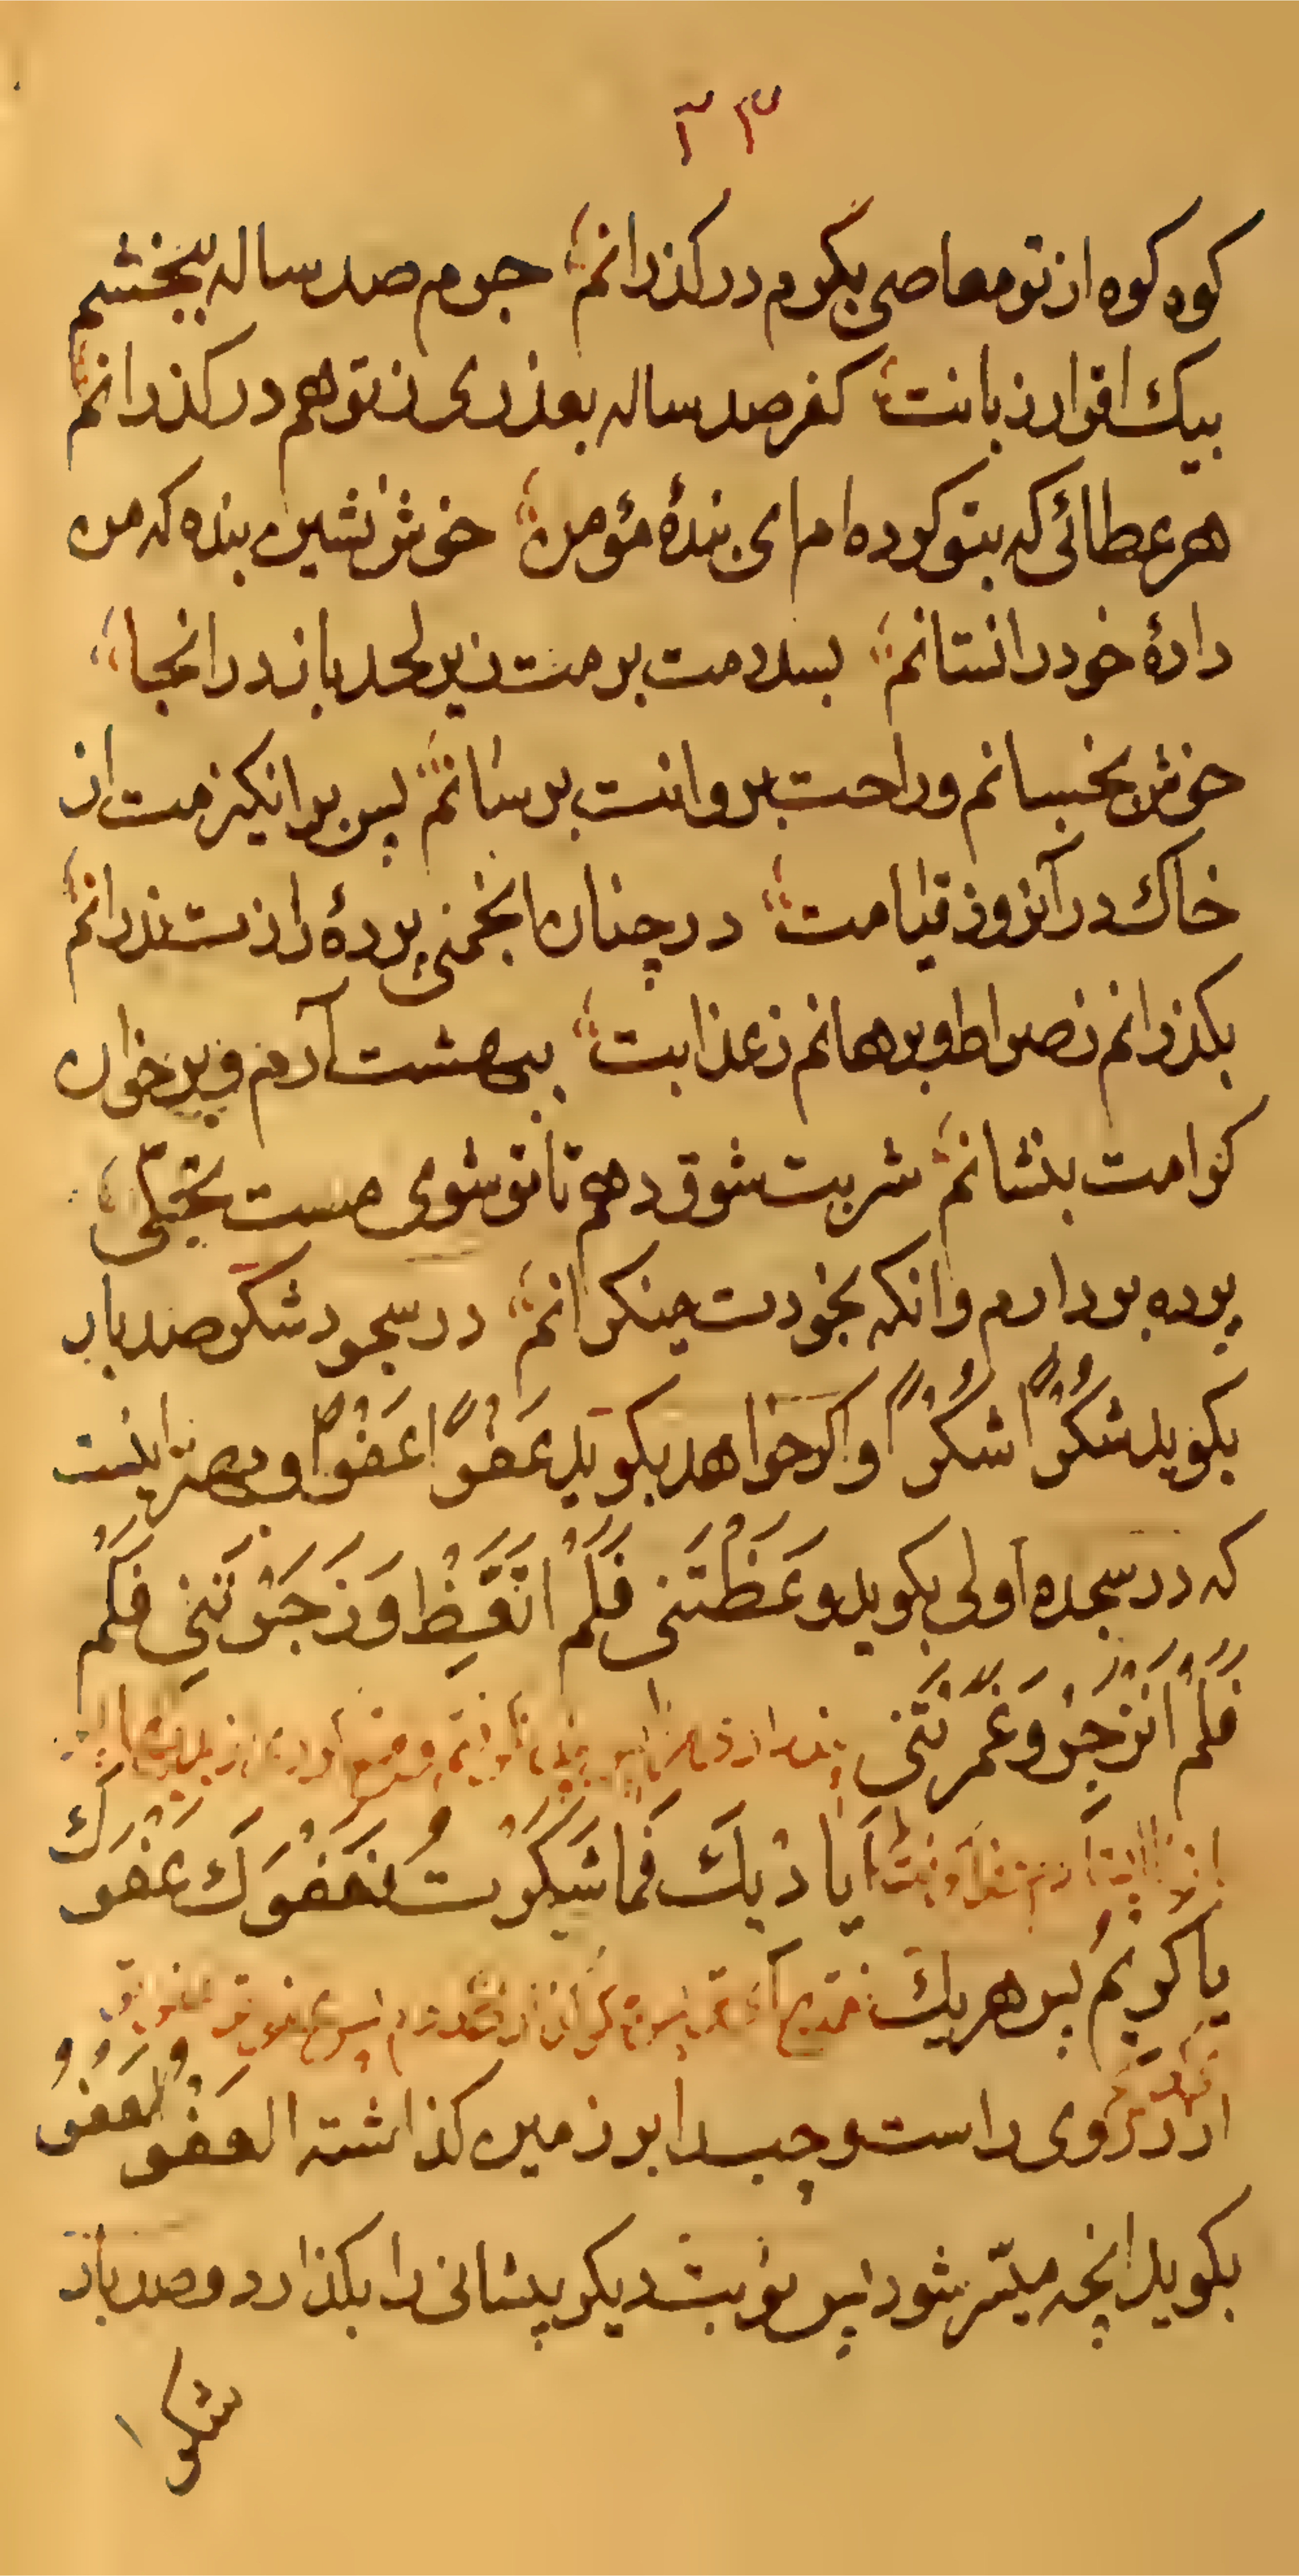 ۲۳
کوه کوه از تو معاصی بکرم درکذرانم جرم صد ساله ببخشم
بیک اقرار زبانت کفر صد ساله بعذری ز تو هم درکذرانم
هر عطائی که بتو کرده ام ای بندهٔ مؤمن خوش نشین بنده که من
دادهٔ خود را نستانم بسلامت برمت زیر لحد باز در انجا
خوش بخسبانم و راحت بروانت برسانم پس برانکیزمت از
خاک در آنروز قیامت در چنان انجمنی پردهٔ رازت ندرانم
بکذرانم ز صراط و برهانم ز عذابت ببهشت آرم و بر خوان
کرامت بنشانم شربت شوق دهم تا تو شوی مست تجلّی
پرده بردارم وانکه بخودت مینکرانم در سجود شکر صد بار
بکوید شُکْرًا شُکْرًا و اکر خواهد بکوید عَفْوًا عَفْوًا و بهتر اینست
که در سجده اولی بکوید وَعَظْتَنی فَلَمْ اَتَّعِظْ وَ زَجَرْتَنِی فَلَمْ
فَلَمْ اَنْزَجِرْ وَ غَمَّرْتَنی
اَیادیکَ فَما شَکَرْتُ عَفْوَکَ عَفْوَکَ
یا کریمُ پس هر یک
از دو روی راست و چپ را بر زمین کذاشته العَفْو العَفْوُ
بکوید انچه میسّر شود پس نوبت دیکر پیشانی را بکذارد و صد بار
شکرا